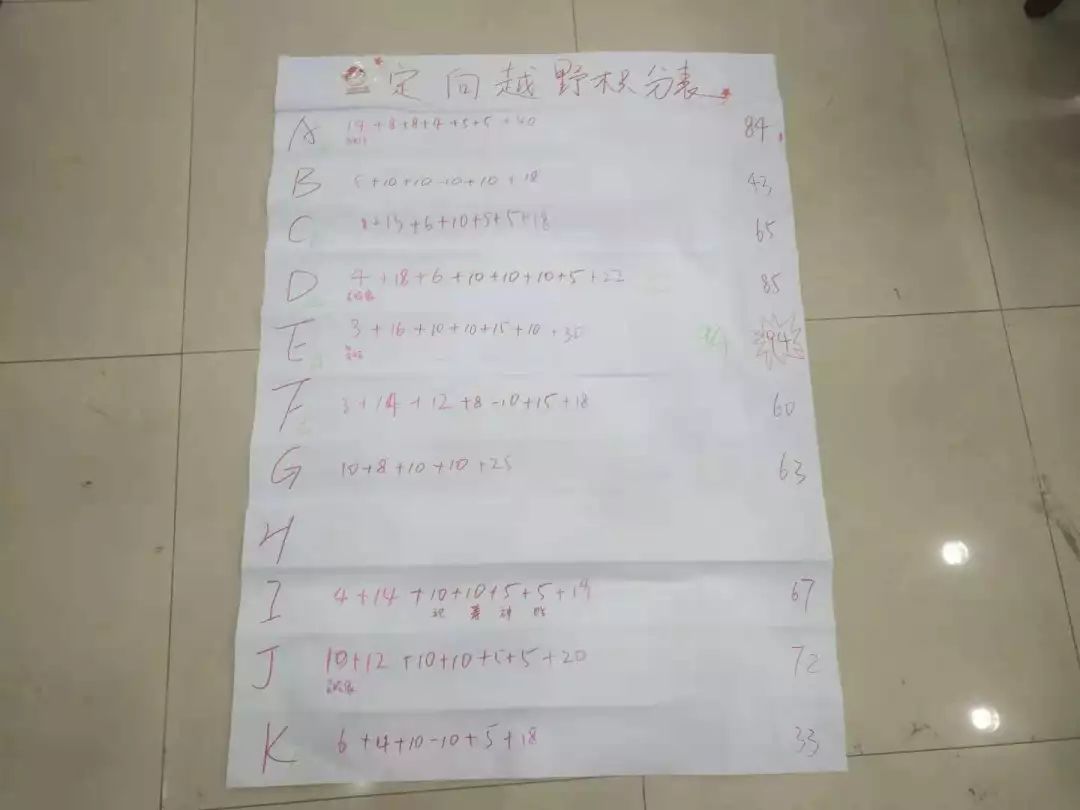 定向越野积分表
A 14+8+8+4+5+5+40 84
B 5+10+10-10+10+18 43
C 8+13+6+10+5+5+18 65
D 4+18+6+10+10+10+5+22 85
E 3+16+10+10+15+10+30 94
F 3+14+12+8-10+15+18 60
G 10+8+10+10+25 63
H
I 4+14+10+10+5+5+19 67
J 10+12+10+10+5+5+20 72
K 6+4+10-10+5+18 33